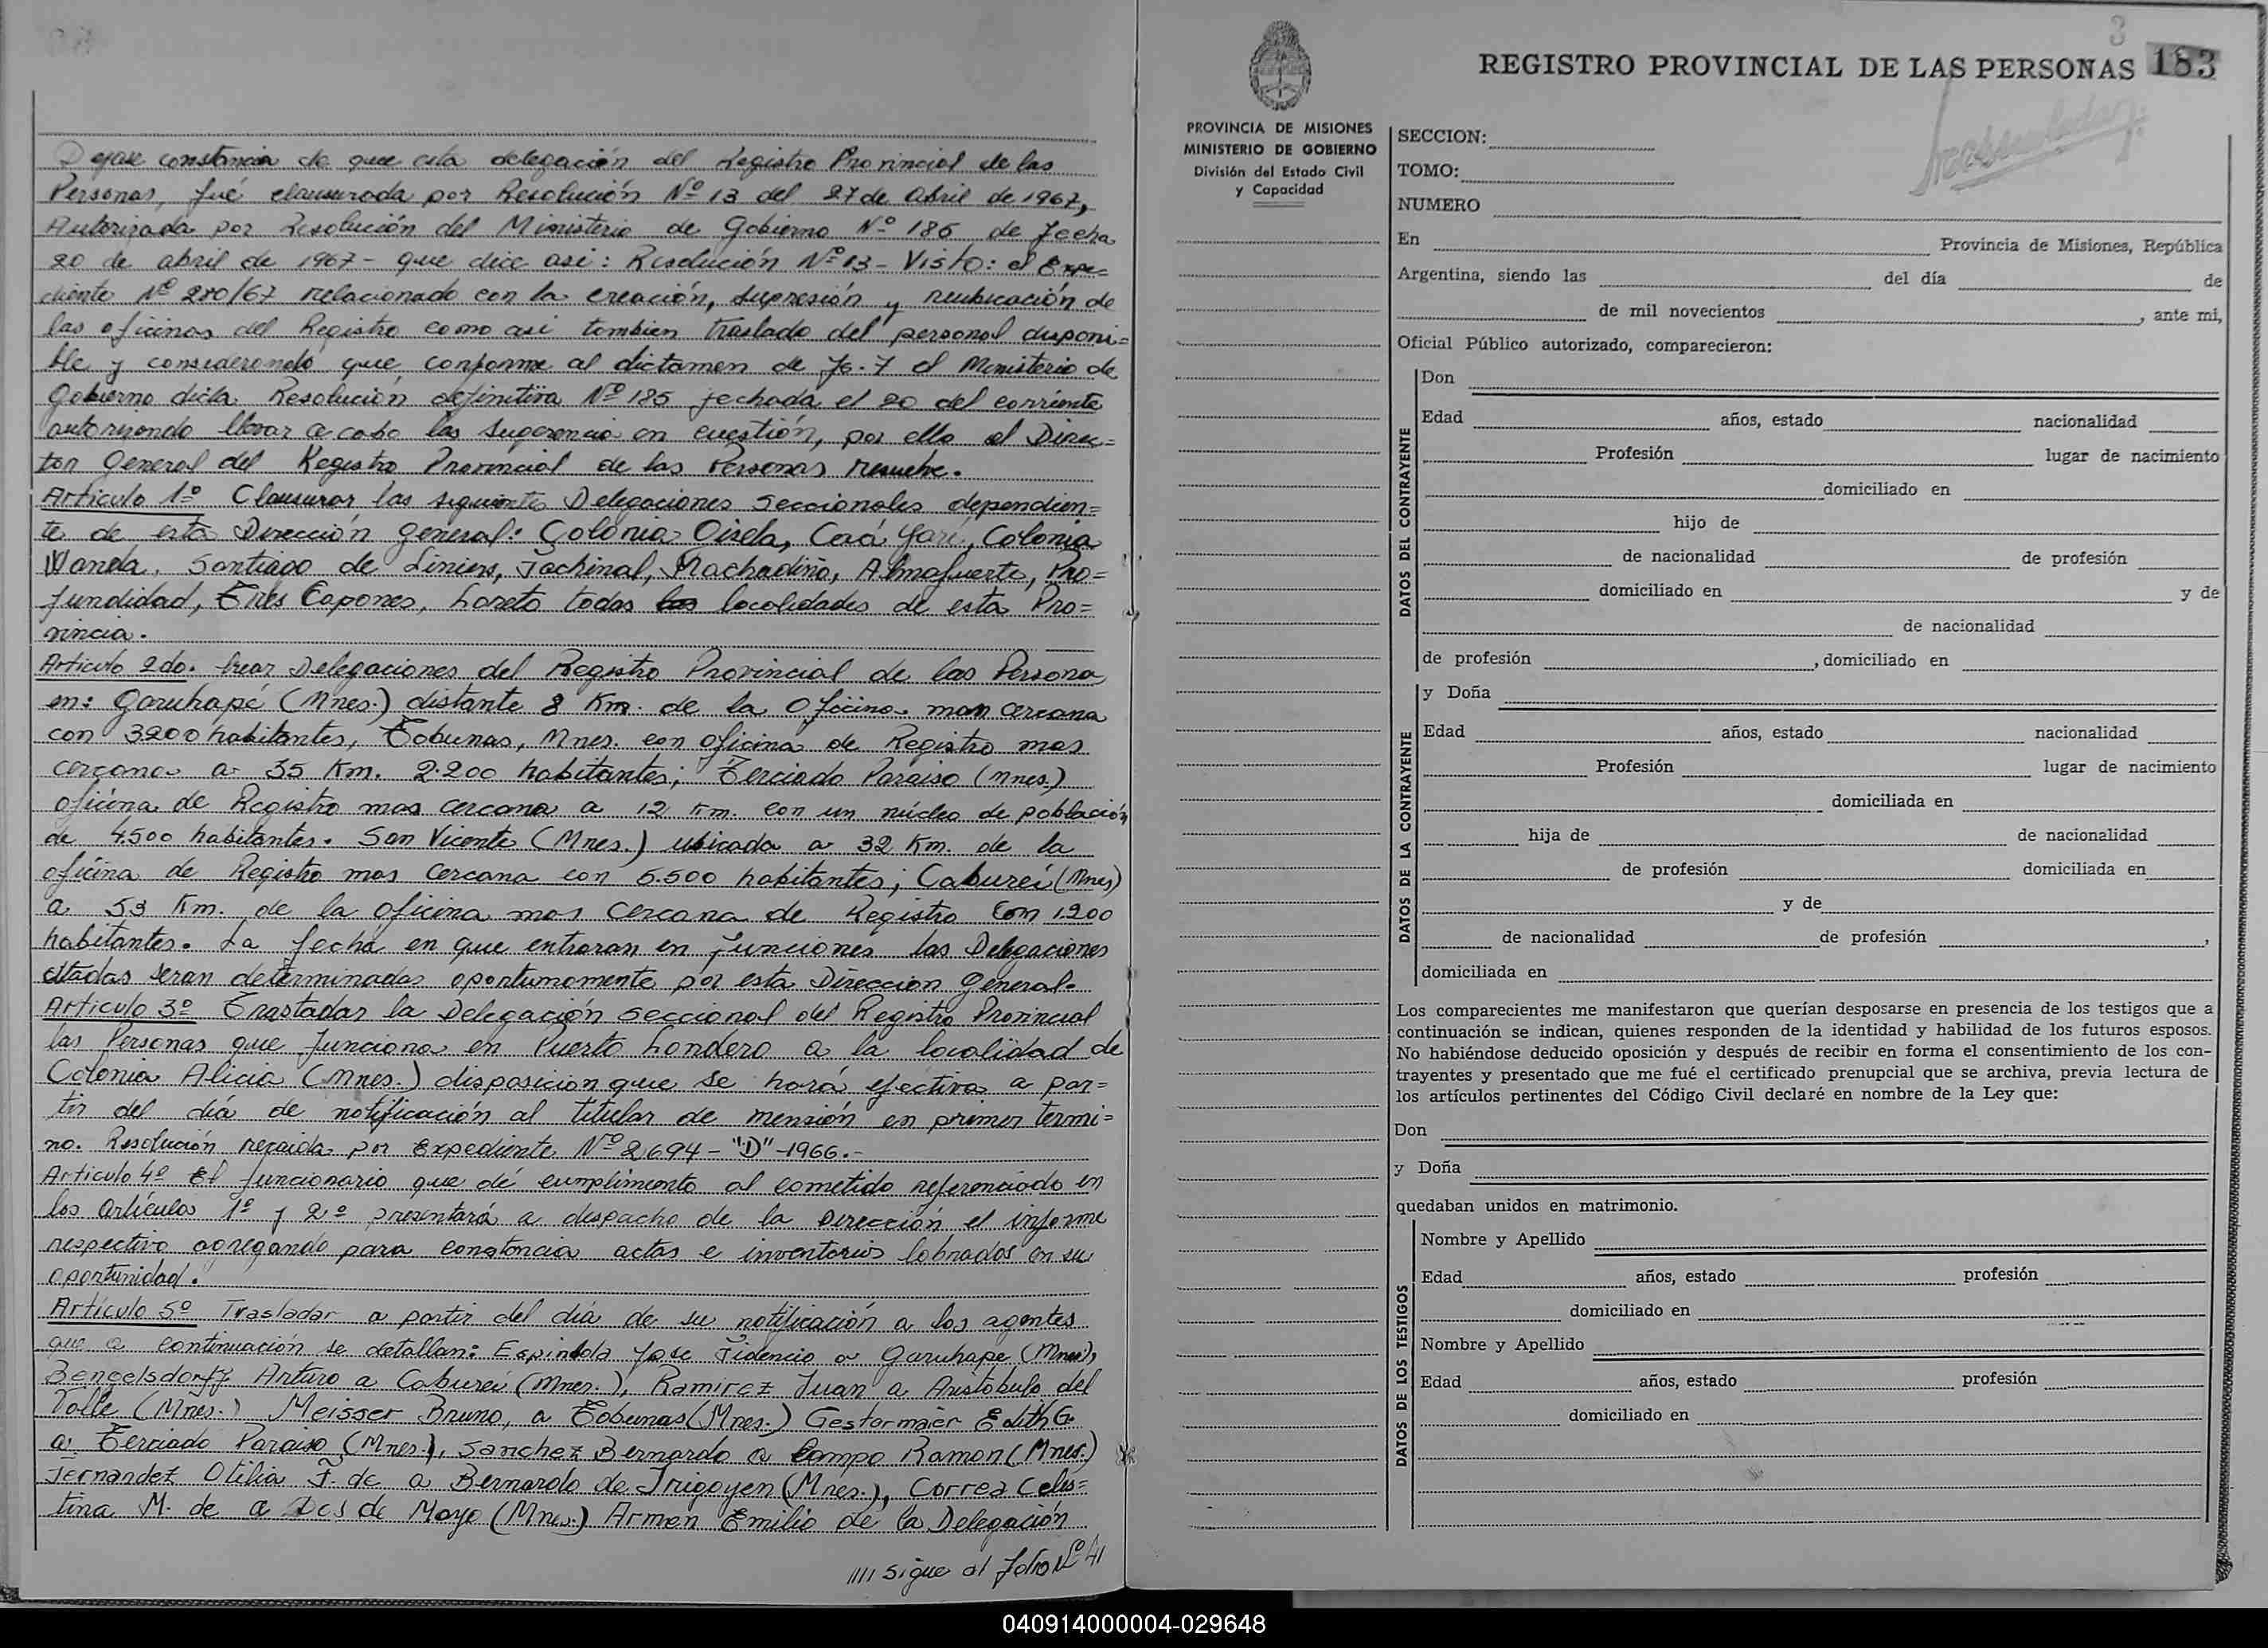 Dejase constancia de que esta delegación del Registro Provincial de las
Personas, fué clausurada por Resolución Nº 13 del 27 de abril de 1967,
Autorizada por Resolución del Ministerio de Gobierno Nº 185 de fecha
20 de abril de 1967 - que dice asi: Resolución Nº 13 - Visto: el Expe=
diente Nº 280/67 relacionado con la creación, supresión y reubicación de
las oficinas del Registro como asi tambien traslado del personal disponi=
ble y considerando que, conforme al dictamen de fs. 7 el Ministerio de
Gobierno dicta Resolución definitiva Nº 185 fechada el 20 del corriente
autorizando llevar a cabo las sugerencia en cuestión, por ello el Direc=
tor General del Registro Provincial de las Personas resuelve.
Articulo 1º Clausurar las siguiente Delegaciones Seccionales dependien=
te de esta Dirección General: Colonia Oisela, Caá Yarí, Colonia
Wanda, Santiago de Liniers, Tachinal, Machadiño, Almafuerte, Pro=
fundidad, Tres Capones, Loreto todas las localidades de esta Pro=
vincia.
Articulo 2do. Crear Delegaciones del Registro Provincial de las Persona
en: Garuhapé (Mnes.) distante 8 Km. de la Oficina mas cercana
con 3200 habitantes, Tobunas, Mnes. con oficina de Registro mas
cercana a 35 Km. 2.200 habitantes; Terciado Paraiso (Mnes.)
oficina de Registro mas cercana a 12 Km. con un núcleo de población
de 4.500 habitantes. San Vicente (Mnes.) ubicada a 32 Km. de la
oficina de Registro mas cercana con 5.500 habitantes; Cabureí (Mnes)
a 53 Km. de la oficina mas cercana de Registro con 1.200
habitantes. La fecha en que entraran en funciones las Delegaciones
citadas seran determinadas oportunamente por esta Direccion General.
Articulo 3º Trastadar la Delegación Seccional del Registro Provincial
las Personas que funciona en Puerto Londero a la localidad de
Colonia Alicia (Mnes.) disposición que se hará efectiva a par=
tir del día de notificación al titular de mensión en primer termi=
no. Resolución recaida por Expediente Nº 2694 - "D" - 1966.-
Articulo 4º El funcionario que dé cumplimiento al cometido referenciado en
los artículos 1º y 2º presentará a despacho de la Dirección el informe
respectivo agregando para constancia actas e inventarios labrados en su
oportunidad.
Articulo 5º Trasladar a partir del día de su notificación a los agentes
que a continuación se detallan: Espindola Jose Fidencio a Garuhape (Mnes),
Bengelsdorff Arturo a Cabureí (Mnes.), Ramirez Juan a Aristobulo del
Valle (Mnes.) Meisser Bruno, a Tobunas (Mnes.) Gestormaier Edith G.
a Terciado Paraiso (Mnes.), Sanchez Bernardo a Campo Ramon (Mnes.)
Fernandez Otilia F. de a Bernardo de Irigoyen (Mnes.), Correa Celes=
tina M. de a Dos de Mayo (Mnes.) Armen Emilio de la Delegación
//// Sigue al folio Nº 41
3
REGISTRO PROVINCIAL DE LAS PERSONAS 183
PROVINCIA DE MISIONES
MINISTERIO DE GOBIERNO
División del Estado Civil
y Capacidad
SECCION:
TOMO:
NUMERO
En Provincia de Misiones, República
Argentina, siendo las del día de
de mil novecientos , ante mi,
Oficial Público autorizado, comparecieron:
DATOS DEL CONTRAYENTE
Don
Edad años, estado nacionalidad
Profesión lugar de nacimiento
domiciliado en
hijo de
de nacionalidad de profesión
domiciliado en y de
de nacionalidad
de profesión , domiciliado en
DATOS DE LA CONTRAYENTE
y Doña
Edad años, estado nacionalidad
Profesión lugar de nacimiento
domiciliada en
hija de de nacionalidad
de profesión domiciliada en
y de
de nacionalidad de profesión ,
domiciliada en
Los comparecientes me manifestaron que querían desposarse en presencia de los testigos que a
continuación se indican, quienes responden de la identidad y habilidad de los futuros esposos.
No habiéndose deducido oposición y después de recibir en forma el consentimiento de los con-
trayentes y presentado que me fué el certificado prenupcial que se archiva, previa lectura de
los artículos pertinentes del Código Civil declaré en nombre de la Ley que:
Don
y Doña
quedaban unidos en matrimonio.
DATOS DE LOS TESTIGOS
Nombre y Apellido
Edad años, estado profesión
domiciliado en
Nombre y Apellido
Edad años, estado profesión
domiciliado en
040914000004-029648